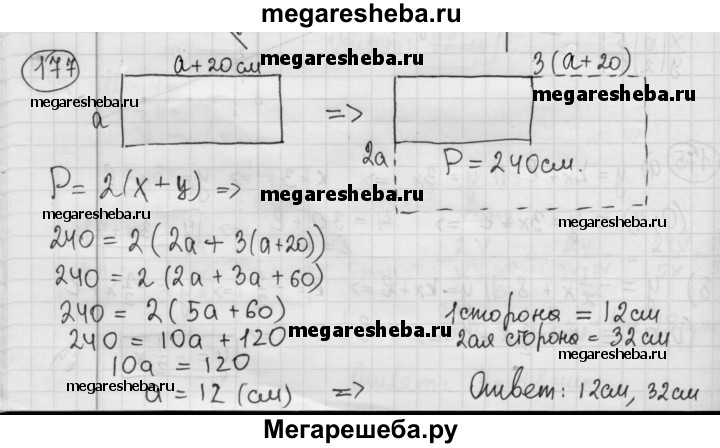 megaresheba.ru
177
a + 20 см
megaresheba.ru
3 (a + 20)
megaresheba.ru
megaresheba.ru
a
=>
2a
P = 240 см.
P = 2 (x + y) =>
megaresheba.ru
megaresheba.ru
megaresheba.ru
240 = 2 ( 2a + 3 (a + 20))
240 = 2 (2a + 3a + 60)
240 = 2 ( 5a + 60)
1 сторона = 12 см
megaresheba.ru
240 = 10a + 120
2ая сторона = 32 см
megaresheba.ru
10a = 120
megaresheba.ru
a = 12 (см) =>
Ответ: 12 см, 32 см
Мегарешеба.ру